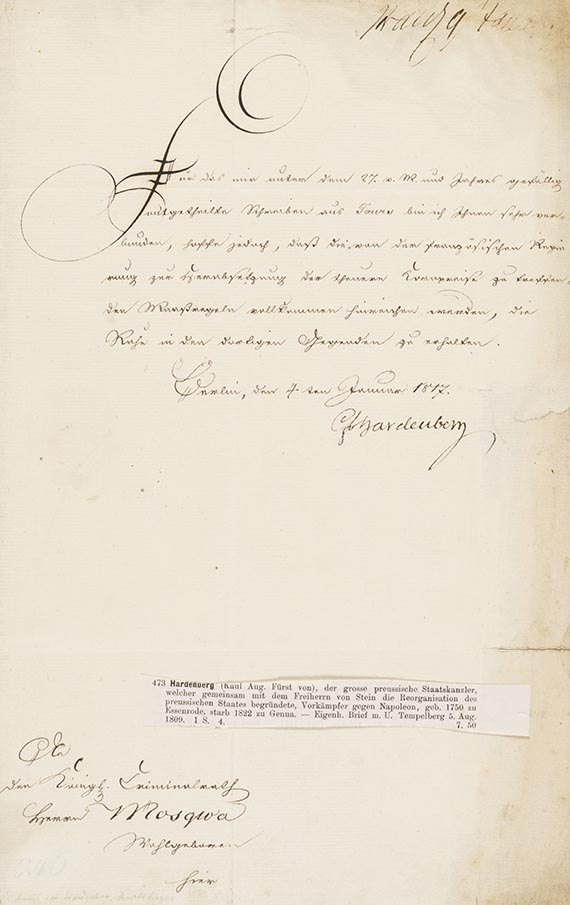 Für das mir unter dem 27. v. M. und Jahres gefällig
mitgetheilte Schreiben aus Tours bin ich Ihnen sehr ver-
bunden, hoffe jedoch, daß die von der französischen Regie
rung zur Herabsetzung der theuren Kornpreise zu treffen
den Maasregeln vollkommen hinreichen werden, die
Ruhe in den dortigen Gegenden zu erhalten.
Berlin, den 4ten Januar 1817.
CfvHardenberg
473 Hardenberg (Karl Aug. Fürst von), der grosse preussische Staatskanzler,
welcher gemeinsam mit dem Freiherrn von Stein die Reorganisation des
preussischen Staates begründete, Vorkämpfer gegen Napoleon, geb. 1750 zu
Essenrode, starb 1822 zu Genua. — Eigenh. Brief m. U. Tempelberg 5. Aug.
1809. 1 S. 4. 7. 50
An
den Königl. Criminalrath
Herrn Mosqua
Wohlgeboren
hier